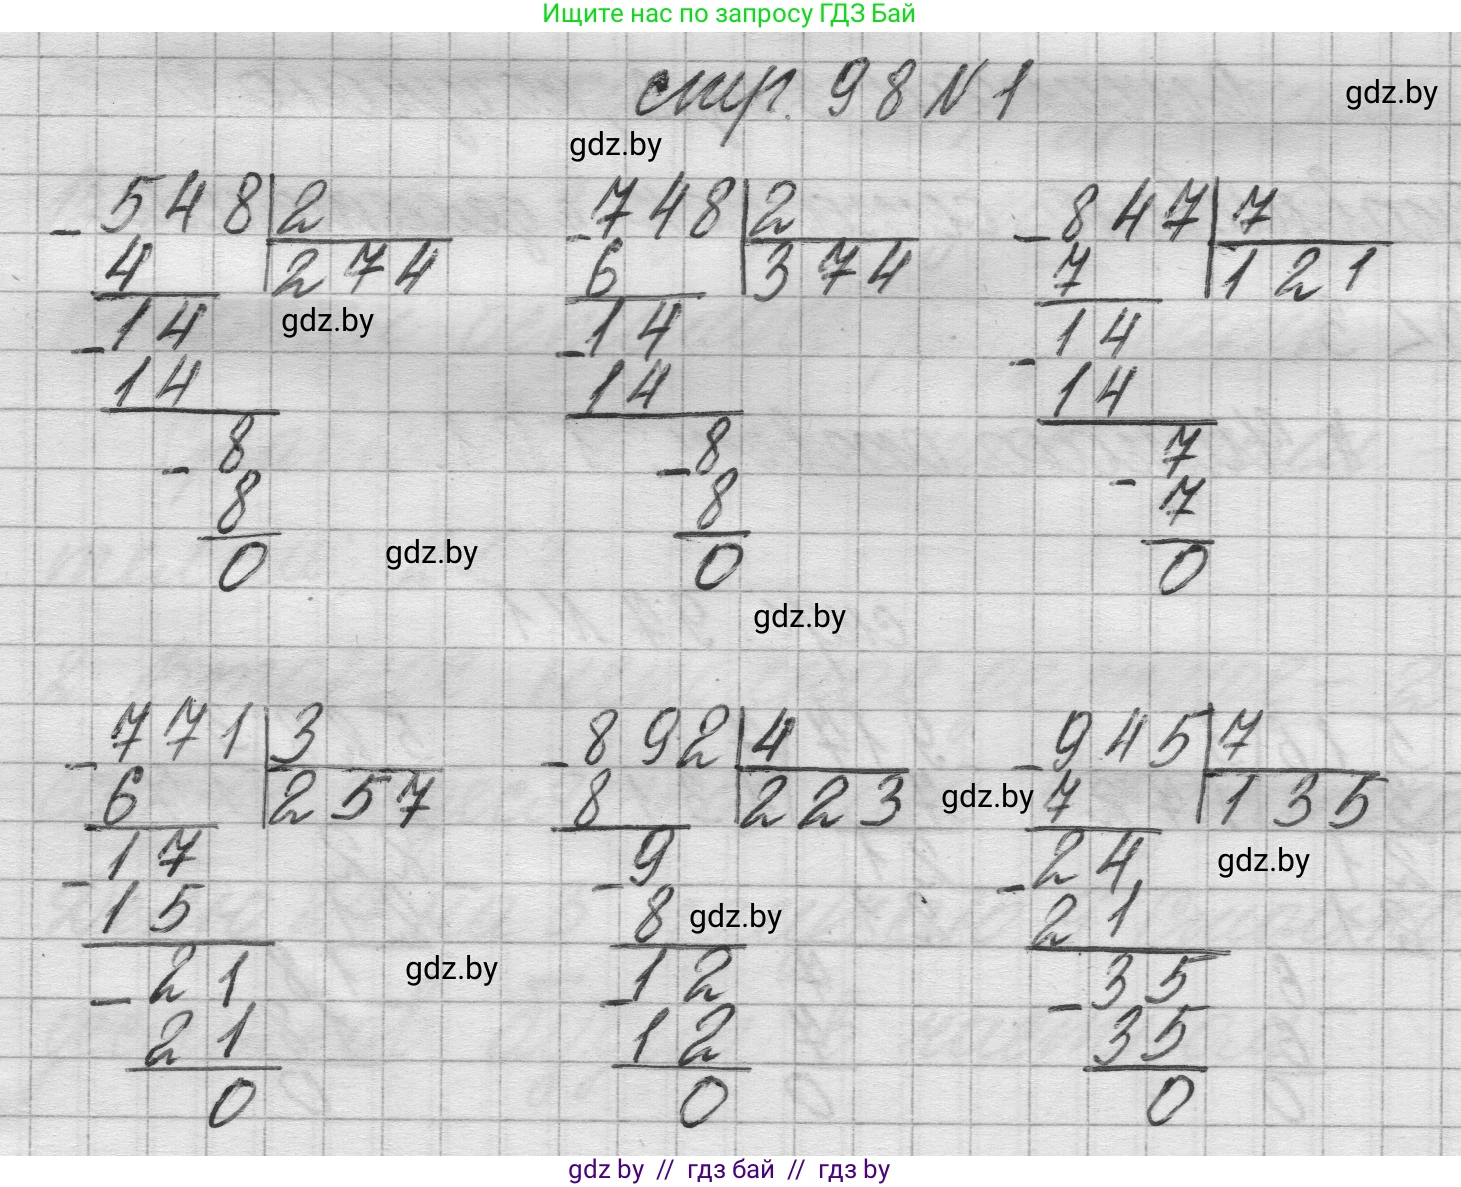 Ищите нас по запросу ГДЗ Бай
стр. 98 N 1
gdz.by
gdz.by
- 548 | 2
4 | 274
- 14
14
- 8
8
0
gdz.by
- 748 | 2
6 | 374
- 14
14
- 8
8
0
- 847 | 7
7 | 121
- 14
14
- 7
7
0
gdz.by
gdz.by
- 771 | 3
6 | 257
- 17
15
- 21
21
0
gdz.by
- 892 | 4
8 | 223
- 9
8
- 12
12
0
gdz.by
gdz.by
- 945 | 7
7 | 135
- 24
21
- 35
35
0
gdz.by
gdz by // гдз бай // gdz by